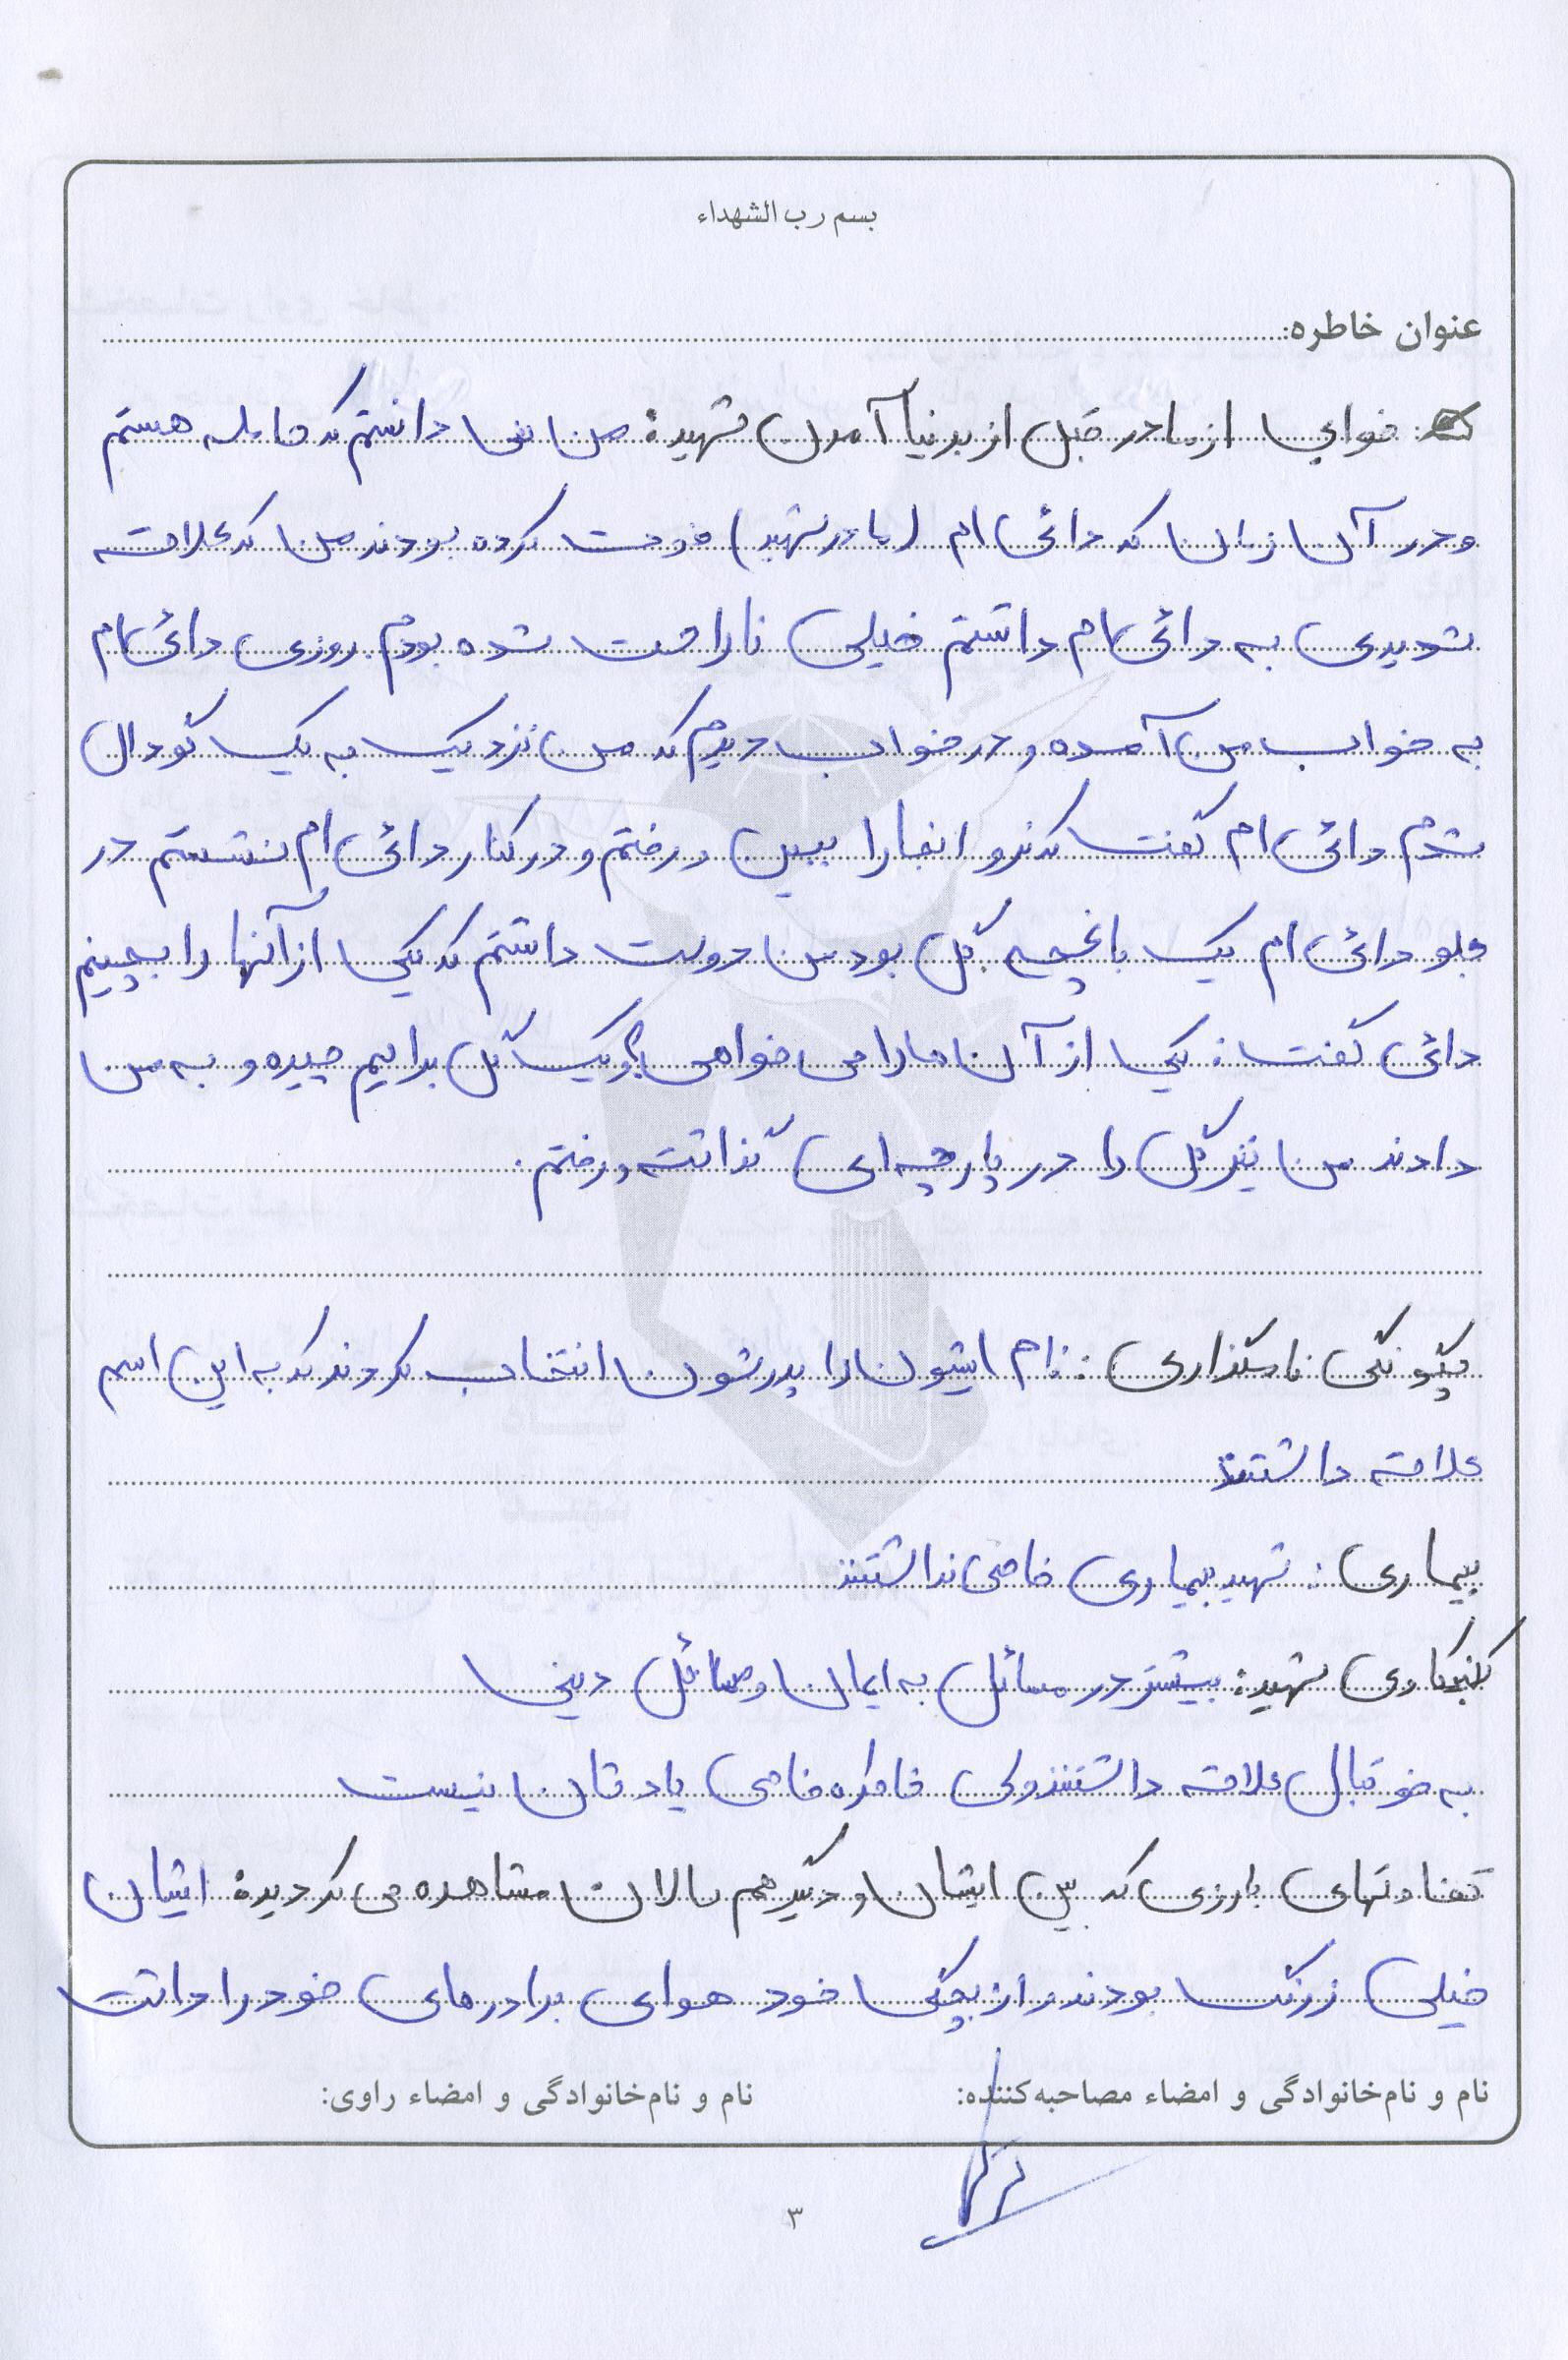 بسم رب الشهداء
عنوان خاطره:
خوابی از مادر قبل از بدنیا آمدن شهید: من نمی دانستم که حامله هستم
و در آن زمان که دائی ام (مادر شهید) فوت کرده بودند من که علاقه
شدیدی به دائی ام داشتم خیلی ناراحت شده بودم. روزی دائی ام
به خواب من آمده و در خواب دیدم که من نزدیک به یک گودال
شدم دائی ام گفت که نرو اینجا را ببین و رفتم و در کنار دائی ام نشستم در
جلو دائی ام یک باغچه گل بود من دوست داشتم که یکی از آنها را بچینم
دائی گفت: یکی از آن ها را می خواهی؟ و یک گل برایم چیده و به من
دادند من نیز گل را در پارچه ای گذاشته و رفتم.
چگونگی نامگذاری: نام ایشون را پدرشون انتخاب کردند که به این اسم
علاقه داشتند
بیماری: شهید بیماری خاصی نداشتند
کنجکاوی شهید: بیشتر در مسائل به ایمان و مسائل دینی
به فوتبال علاقه داشتند ولی خاطره خاصی یادتان نیست
تفاوتهای بارزی که بین ایشان و دیگر هم سالان مشاهده می کردید: ایشان
خیلی زرنگ بودند و از بچگی خود هوای برادرهای خود را داشت
نام و نام‌خانوادگی و امضاء مصاحبه‌کننده:
نام و نام‌خانوادگی و امضاء راوی:
۳